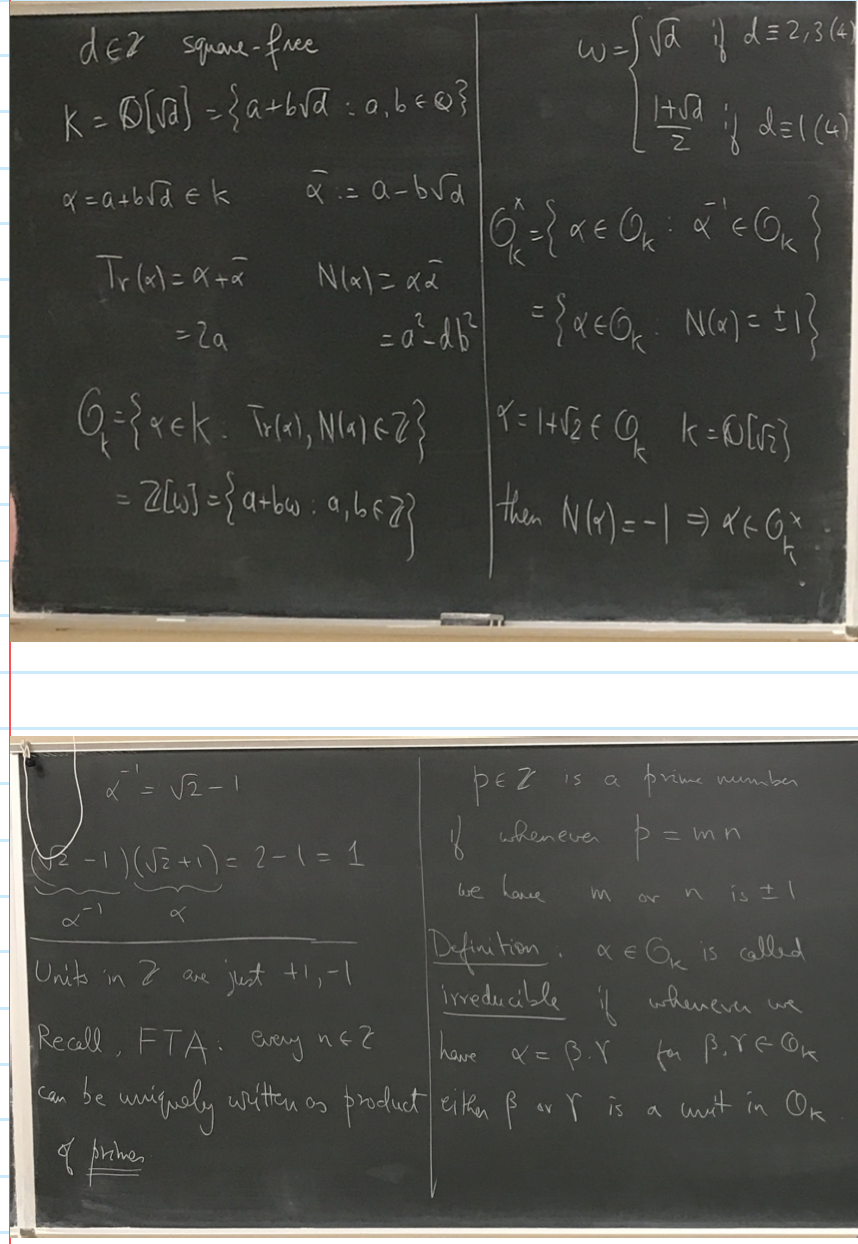 d ∈ ℤ square-free
K = ℚ[√d] = {a+b√d : a, b ∈ ℚ}
α = a+b√d ∈ K ᾱ := a-b√d
Tr(α) = α+ᾱ N(α) = αᾱ
= 2a = a²-db²
𝒪_K = {α ∈ K : Tr(α), N(α) ∈ ℤ}
= ℤ[ω] = {a+bω : a, b ∈ ℤ}
ω = { √d if d ≡ 2,3 (4)
(1+√d)/2 if d ≡ 1 (4)
𝒪_K^× = {α ∈ 𝒪_K : α⁻¹ ∈ 𝒪_K}
= {α ∈ 𝒪_K : N(α) = ±1}
α = 1+√2 ∈ 𝒪_K K = ℚ[√2]
then N(α) = -1 ⇒ α ∈ 𝒪_K^×
α⁻¹ = √2 - 1
(√2 - 1)(√2 + 1) = 2 - 1 = 1
α⁻¹ α
Units in ℤ are just +1, -1
Recall, FTA: every n ∈ ℤ
can be uniquely written as product
of primes
p ∈ ℤ is a prime number
if whenever p = mn
we have m or n is ±1
Definition: α ∈ 𝒪_K is called
irreducible if whenever we
have α = β.γ for β, γ ∈ 𝒪_K
either β or γ is a unit in 𝒪_K